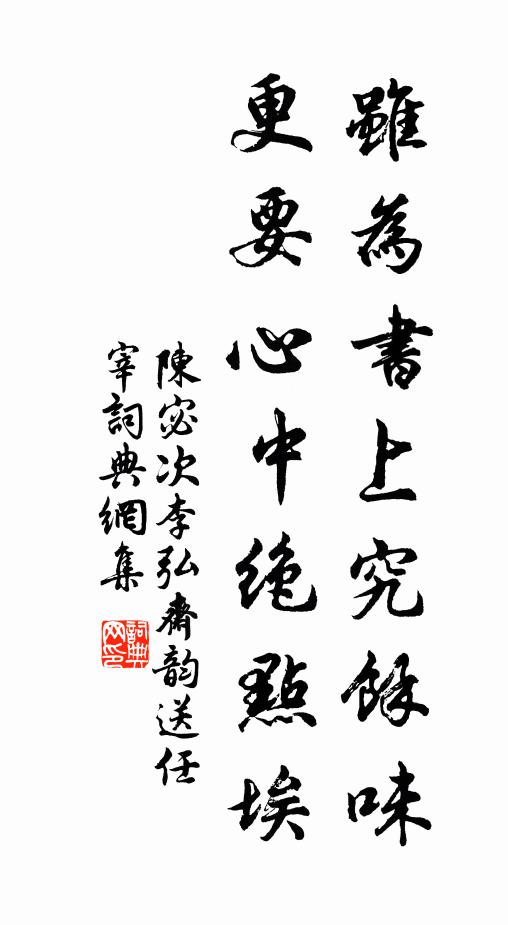 雖為書上究餘味
更要心中絶點埃
陳宓次李弘齋韵送任
宰詞典網集
詞典
网印